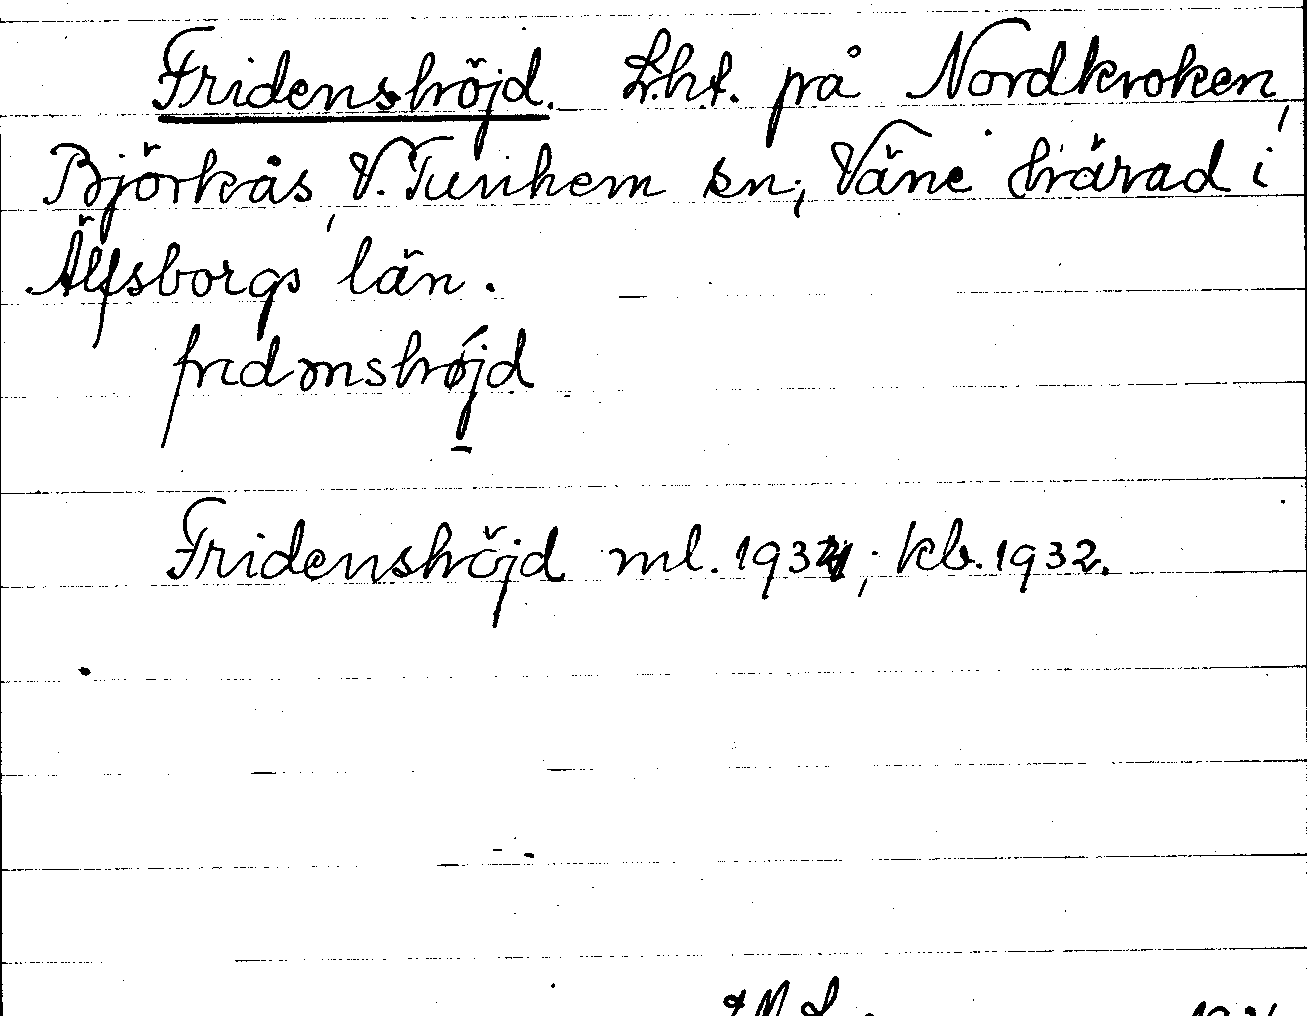 Fridenshöjd. Lht. på Nordkroken,
Björkås, V. Tunhem sn, Väne härad i
Älfsborgs län.
Fridenshöjd ml. 1934; kb. 1932.